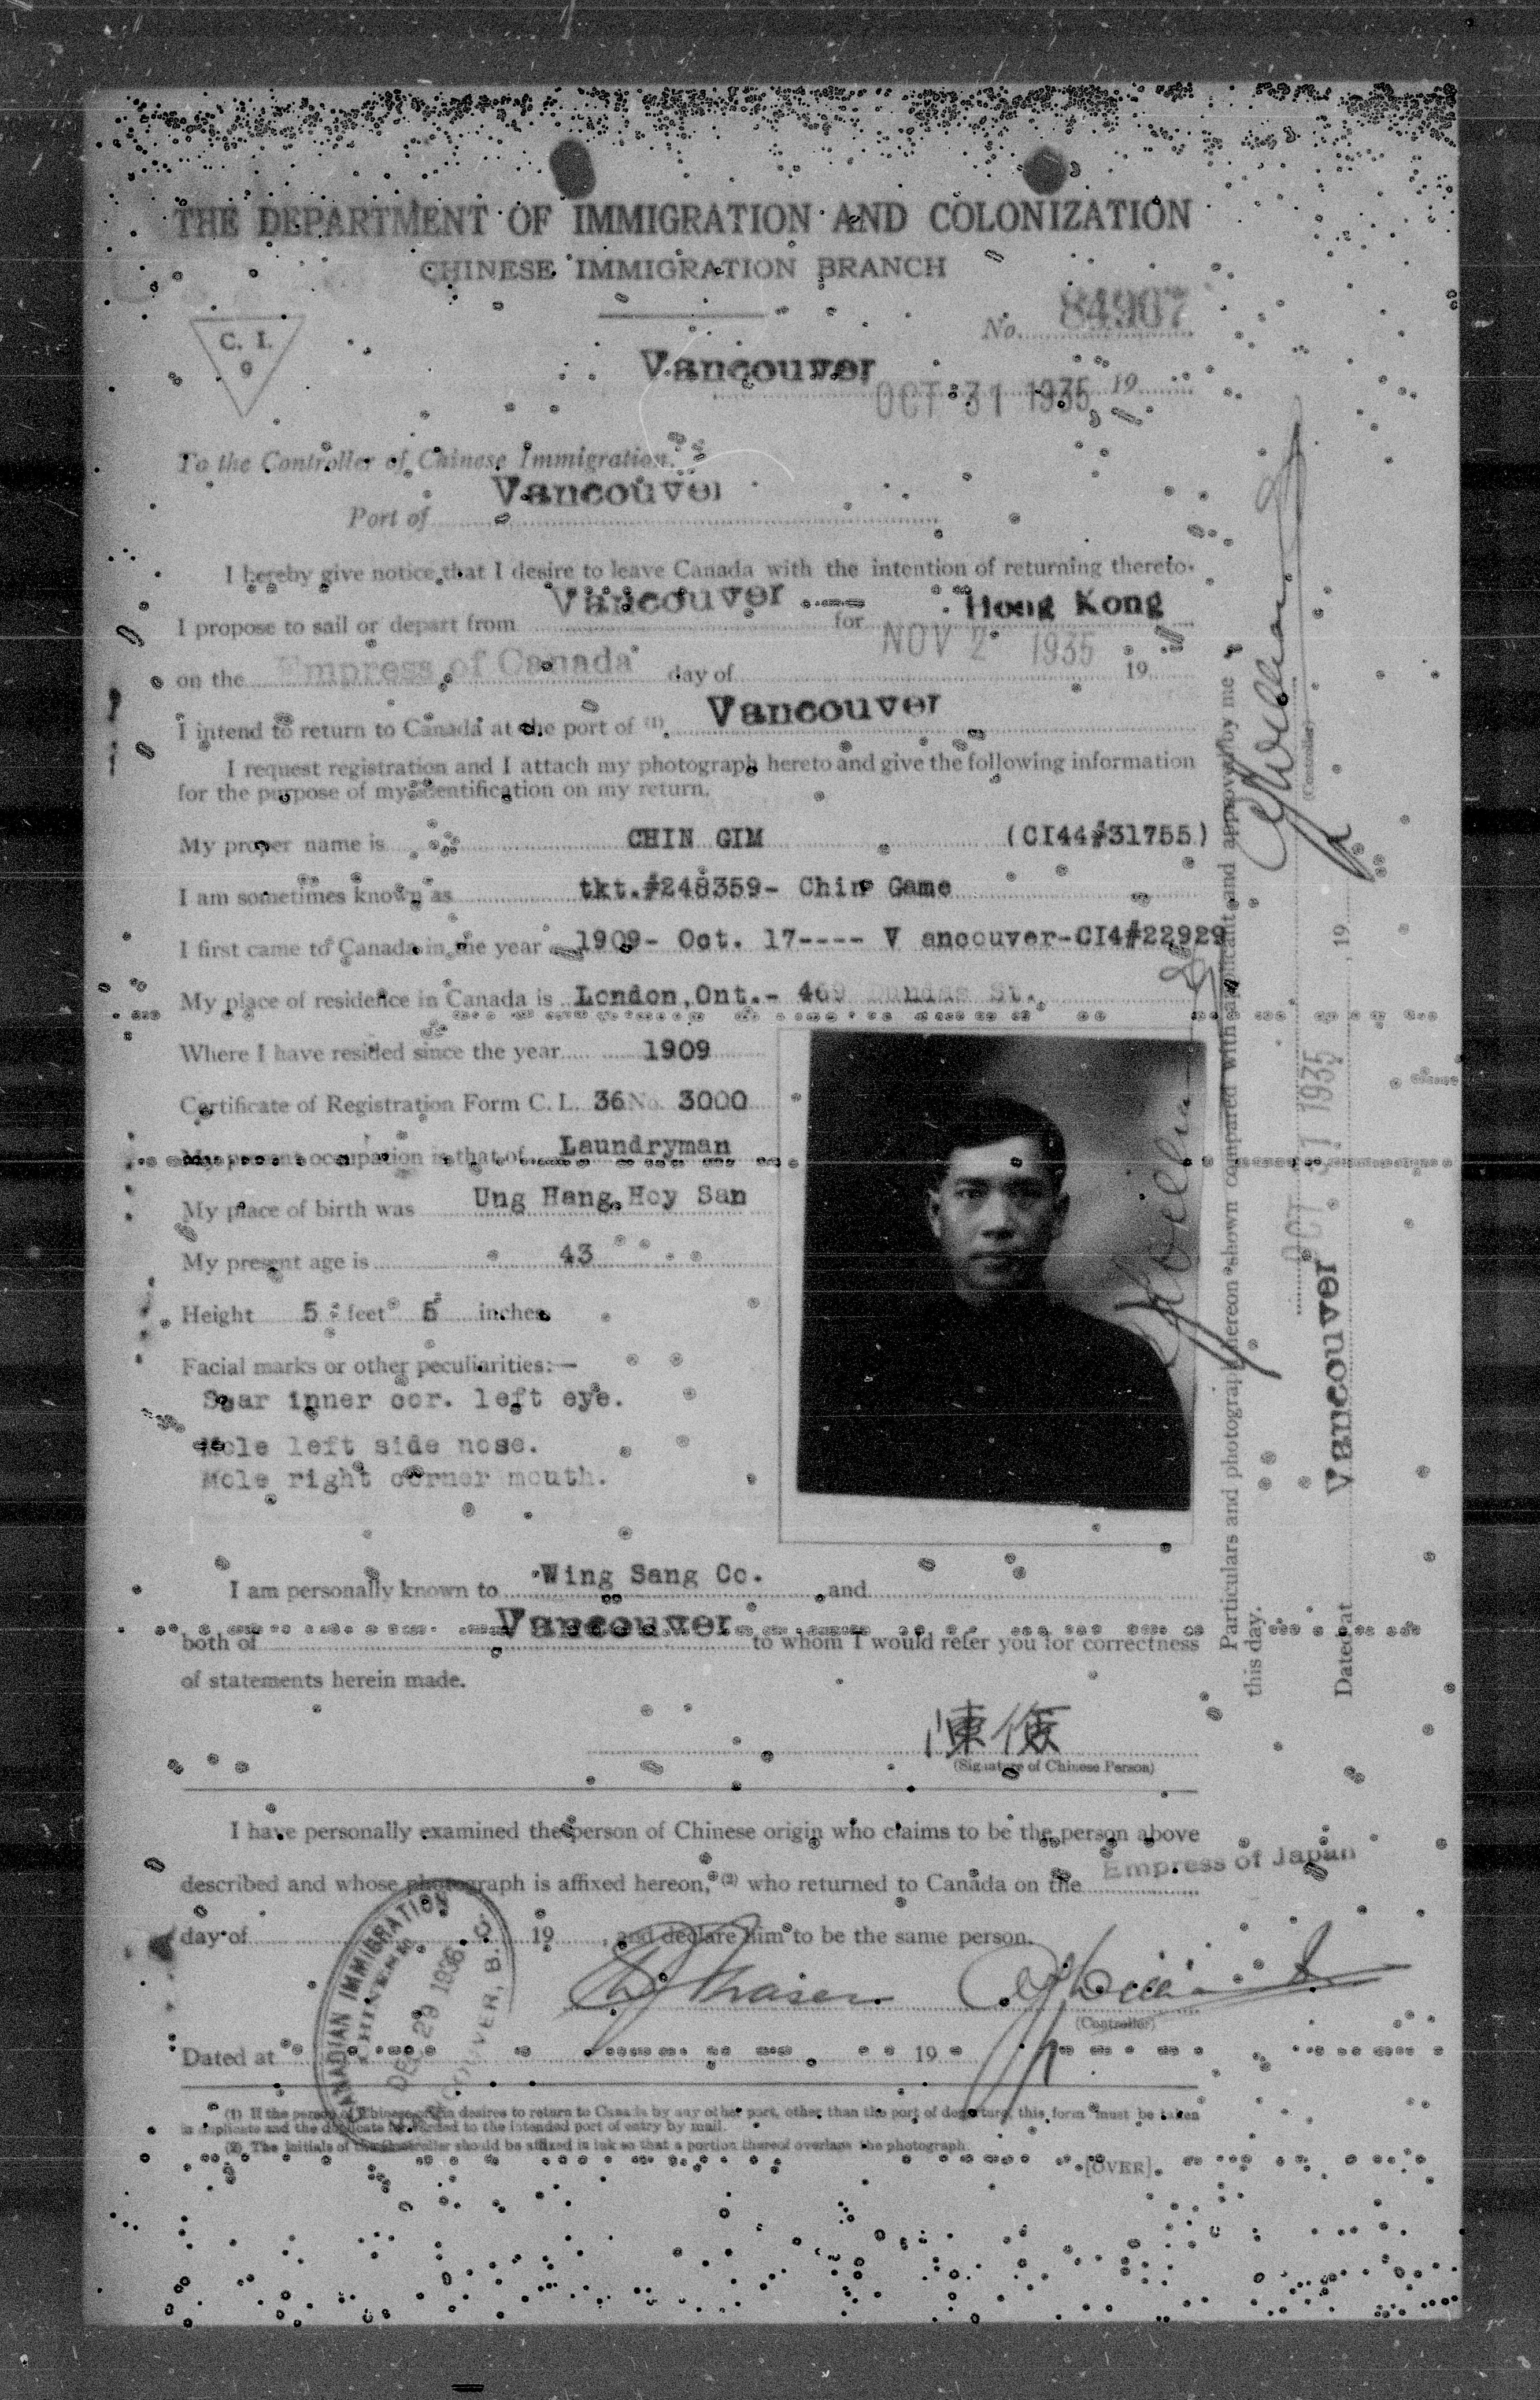 THE DEPARTMENT OF IMMIGRATION AND COLONIZATION
CHINESE IMMIGRATION BRANCH
C. I.
9
No. 84907
Vancouver
OCT 31 1935 19
To the Controller of Chinese Immigration.
Vancouver
Port of
I hereby give notice that I desire to leave Canada with the intention of returning thereto.
I propose to sail or depart from Vancouver for Hong Kong
on the Empress of Canada day of NOV 2 1935 19
I intend to return to Canada at the port of (1) Vancouver
I request registration and I attach my photograph hereto and give the following information
for the purpose of my identification on my return.
My proper name is CHIN GIM (CI44#31755)
I am sometimes known as tkt.#248359- Chin Game
I first came to Canada in the year 1909- Oct. 17---- V ancouver-CI4#22929
My place of residence in Canada is London, Ont.- 469 Dundas St.
Where I have resided since the year 1909
Certificate of Registration Form C. I. 36 No. 3000
My present occupation is that of Laundryman
My place of birth was Ung Hang, Hoy San
My present age is 43
Height 5 feet 5 inches
Facial marks or other peculiarities:—
Scar inner cor. left eye.
Mole left side nose.
Mole right corner mouth.
I am personally known to Wing Sang Co. and
both of Vancouver to whom I would refer you for correctness
of statements herein made.
陳俊
(Signature of Chinese Person)
I have personally examined the person of Chinese origin who claims to be the person above
described and whose photograph is affixed hereon, (2) who returned to Canada on the Empress of Japan
day of 19 , and declare him to be the same person.
(Controller)
Dated at 19
CANADIAN IMMIGRATION
CHINESE
DEC 29 1936
VANCOUVER, B.C.
(1) If the person of Chinese origin desires to return to Canada by any other port, other than the port of departure, this form must be taken
in duplicate and the duplicate forwarded to the intended port of entry by mail.
(2) The initials of the Controller should be affixed in ink so that a portion thereof overlaps the photograph.
[OVER]
Particulars and photograph hereon shown compared with applicant and approved by me
this day.
OCT 31 1935
(Controller)
Dated at Vancouver , 19